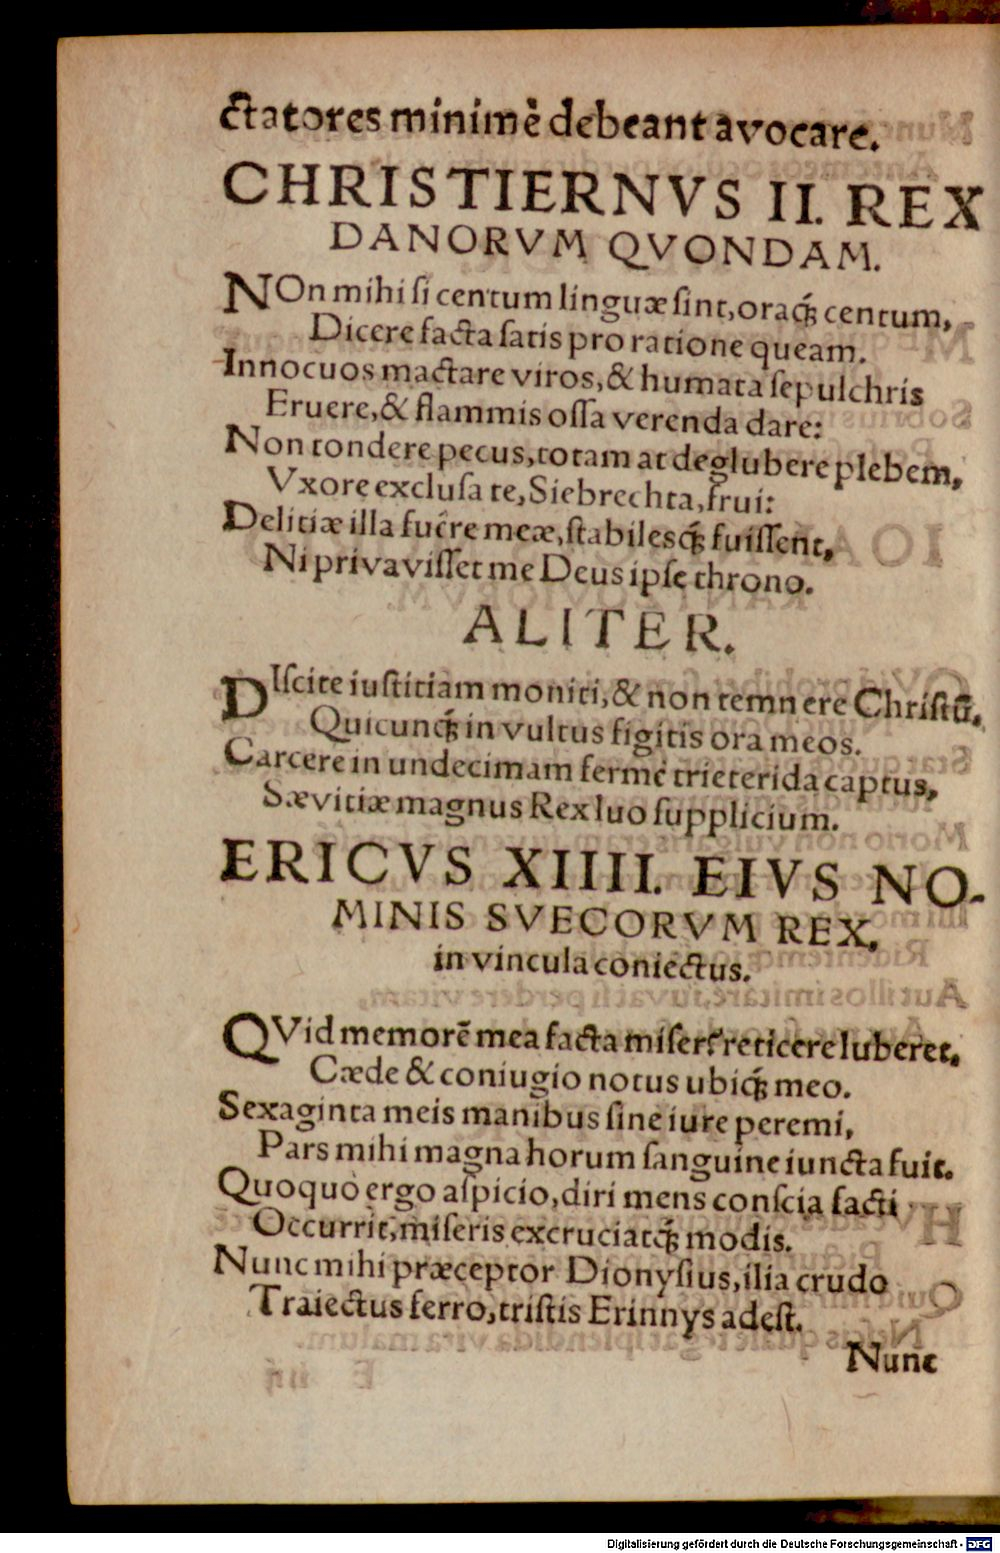 ctatores minimè debeant avocare.
CHRISTIERNVS II. REX
DANORVM QVONDAM.
NOn mihi ſi centum linguæ ſint, oraq́ꝫ centum,
Dicere facta ſatis pro ratione queam.
Innocuos mactare viros, & humata ſepulchris
Eruere, & flammis oſſa verenda dare:
Non tondere pecus, totam at deglubere plebem,
Vxore excluſa te, Siebrechta, frui:
Delitiæ illa fuêre meæ, ſtabilesq́ꝫ fuiſſent,
Ni privaviſſet me Deus ipſe throno.
ALITER.
DIſcite iuſtitiam moniti, & non temnere Chriſtū,
Quicunq́ꝫ in vultus figitis ora meos.
Carcere in undecimam fermè trieterida captus,
Sævitiæ magnus Rex luo ſupplicium.
ERICVS XIIII. EIVS NO-
MINIS SVECORVM REX,
in vincula coniectus.
QVid memorē mea facta miſer? reticere luberet,
Cæde & coniugio notus ubiq́ꝫ meo.
Sexaginta meis manibus ſine iure peremi,
Pars mihi magna horum ſanguine iuncta fuit.
Quoquò ergo aſpicio, diri mens conſcia facti
Occurrit, miſeris excruciatq́ꝫ modis.
Nunc mihi præceptor Dionyſius, ilia crudo
Traiectus ferro, triſtis Erinnys adeſt.
Nunc
Digitalisierung gefördert durch die Deutsche Forschungsgemeinschaft - DFG